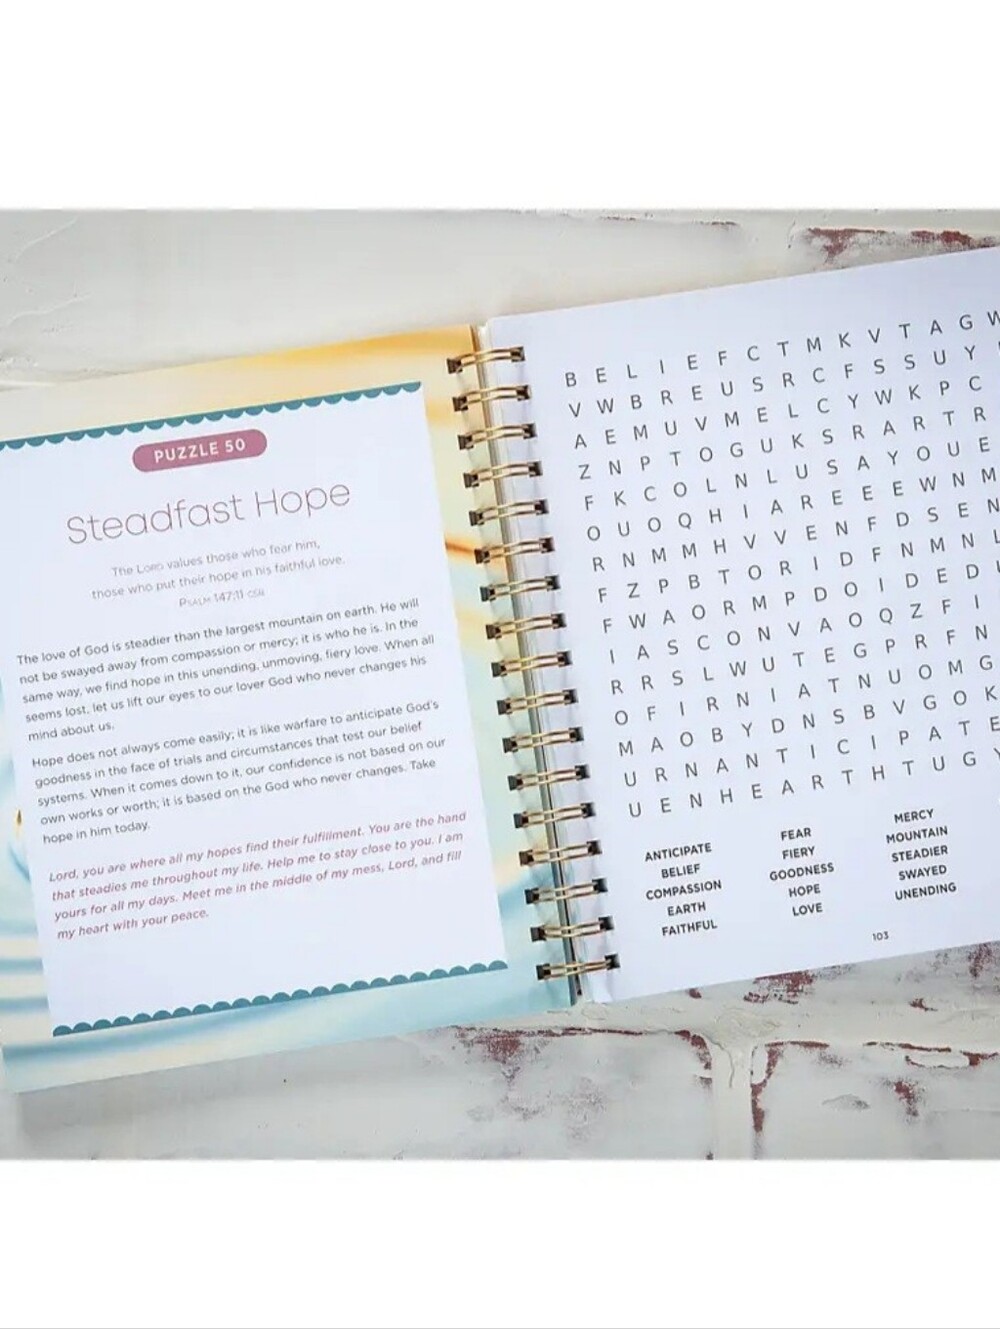 PUZZLE 50
Steadfast Hope
The LORD values those who fear him,
those who put their hope in his faithful love.
PSALM 147:11 CSB
The love of God is steadier than the largest mountain on earth. He will
not be swayed away from compassion or mercy; it is who he is. In the
same way, we find hope in this unending, unmoving, fiery love. When all
seems lost, let us lift our eyes to our lover God who never changes his
mind about us.
Hope does not always come easily; it is like warfare to anticipate God's
goodness in the face of trials and circumstances that test our belief
systems. When it comes down to it, our confidence is not based on our
own works or worth; it is based on the God who never changes. Take
hope in him today.
Lord, you are where all my hopes find their fulfillment. You are the hand
that steadies me throughout my life. Help me to stay close to you. I am
yours for all my days. Meet me in the middle of my mess, Lord, and fill
my heart with your peace.
B E L I E F C T M K V T A G W
V W B R E U S R C F S S U Y
A E M U V M E L C Y W K P C
Z N P T O G U K S R A R T R
F K C O L N L U S A Y O U E
O U O Q H I A R E E E W N M
R N M M H V V E N F D S E N
F Z P B T O R I D F N M N L
F W A O R M P D O I D E D
I A S C O N V A O Q Z F I
R R S L W U T E G P R F N
O F I R N I A T N U O M G
M A O B Y D N S B V G O K
U R N A N T I C I P A T E
U E N H E A R T H T U G
ANTICIPATE
BELIEF
COMPASSION
EARTH
FAITHFUL
FEAR
FIERY
GOODNESS
HOPE
LOVE
MERCY
MOUNTAIN
STEADIER
SWAYED
UNENDING
103